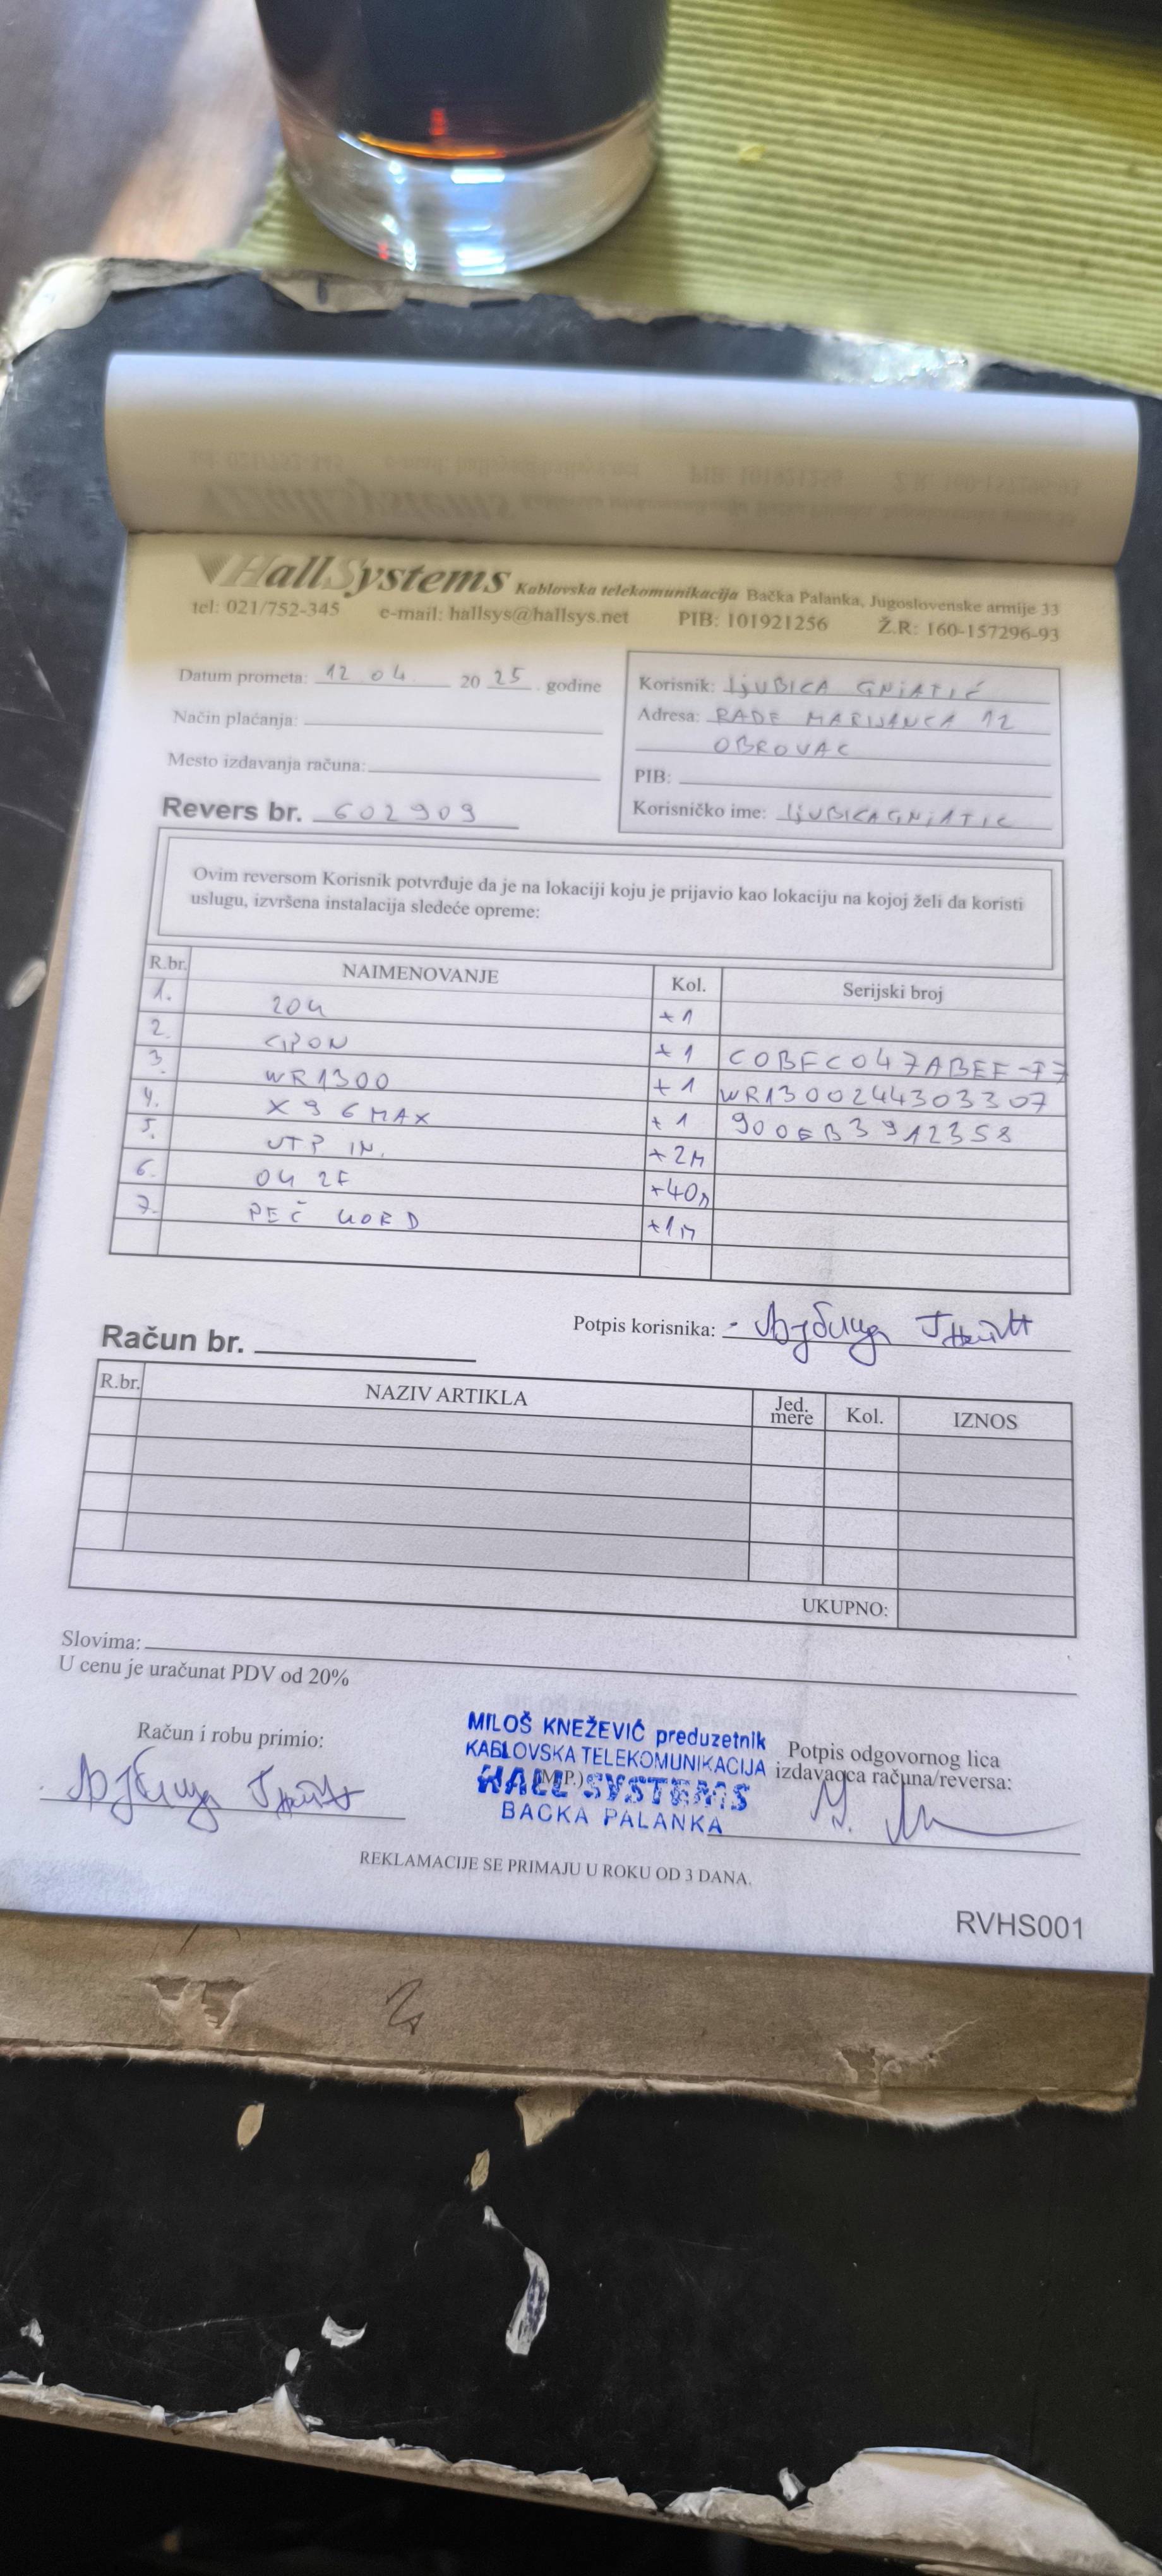 HallSystems Kablovska telekomunikacija Bačka Palanka, Jugoslovenske armije 33
tel: 021/752-345 e-mail: hallsys@hallsys.net PIB: 101921256 Ž.R: 160-157296-93
Datum prometa: 12 04 2025 godine
Način plaćanja:
Mesto izdavanja računa:
Revers br. 602909
Korisnik: LjUBICA GNJATIĆ
Adresa: RADE MARIJANCA 12
OBROVAC
PIB:
Korisničko ime: LjUBICAGNjATIC
Ovim reversom Korisnik potvrđuje da je na lokaciji koju je prijavio kao lokaciju na kojoj želi da koristi
uslugu, izvršena instalacija sledeće opreme:
R.br. NAIMENOVANJE Kol. Serijski broj
1. +1
2. GPON +1
3. WR1300 +1 WR1300244303307
4. X96MAX +1 900EB3912358
5. UTP IN. +2M
6. 04 2F +40M
7. +1M
Potpis korisnika:
Račun br.
R.br. NAZIV ARTIKLA Jed. mere Kol. IZNOS
UKUPNO:
Slovima:
U cenu je uračunat PDV od 20%
Račun i robu primio:
MILOŠ KNEŽEVIĆ preduzetnik
KABLOVSKA TELEKOMUNIKACIJA
(M.P.)
HALL SYSTEMS
BACKA PALANKA
Potpis odgovornog lica
izdavaoca računa/reversa:
REKLAMACIJE SE PRIMAJU U ROKU OD 3 DANA.
RVHS001